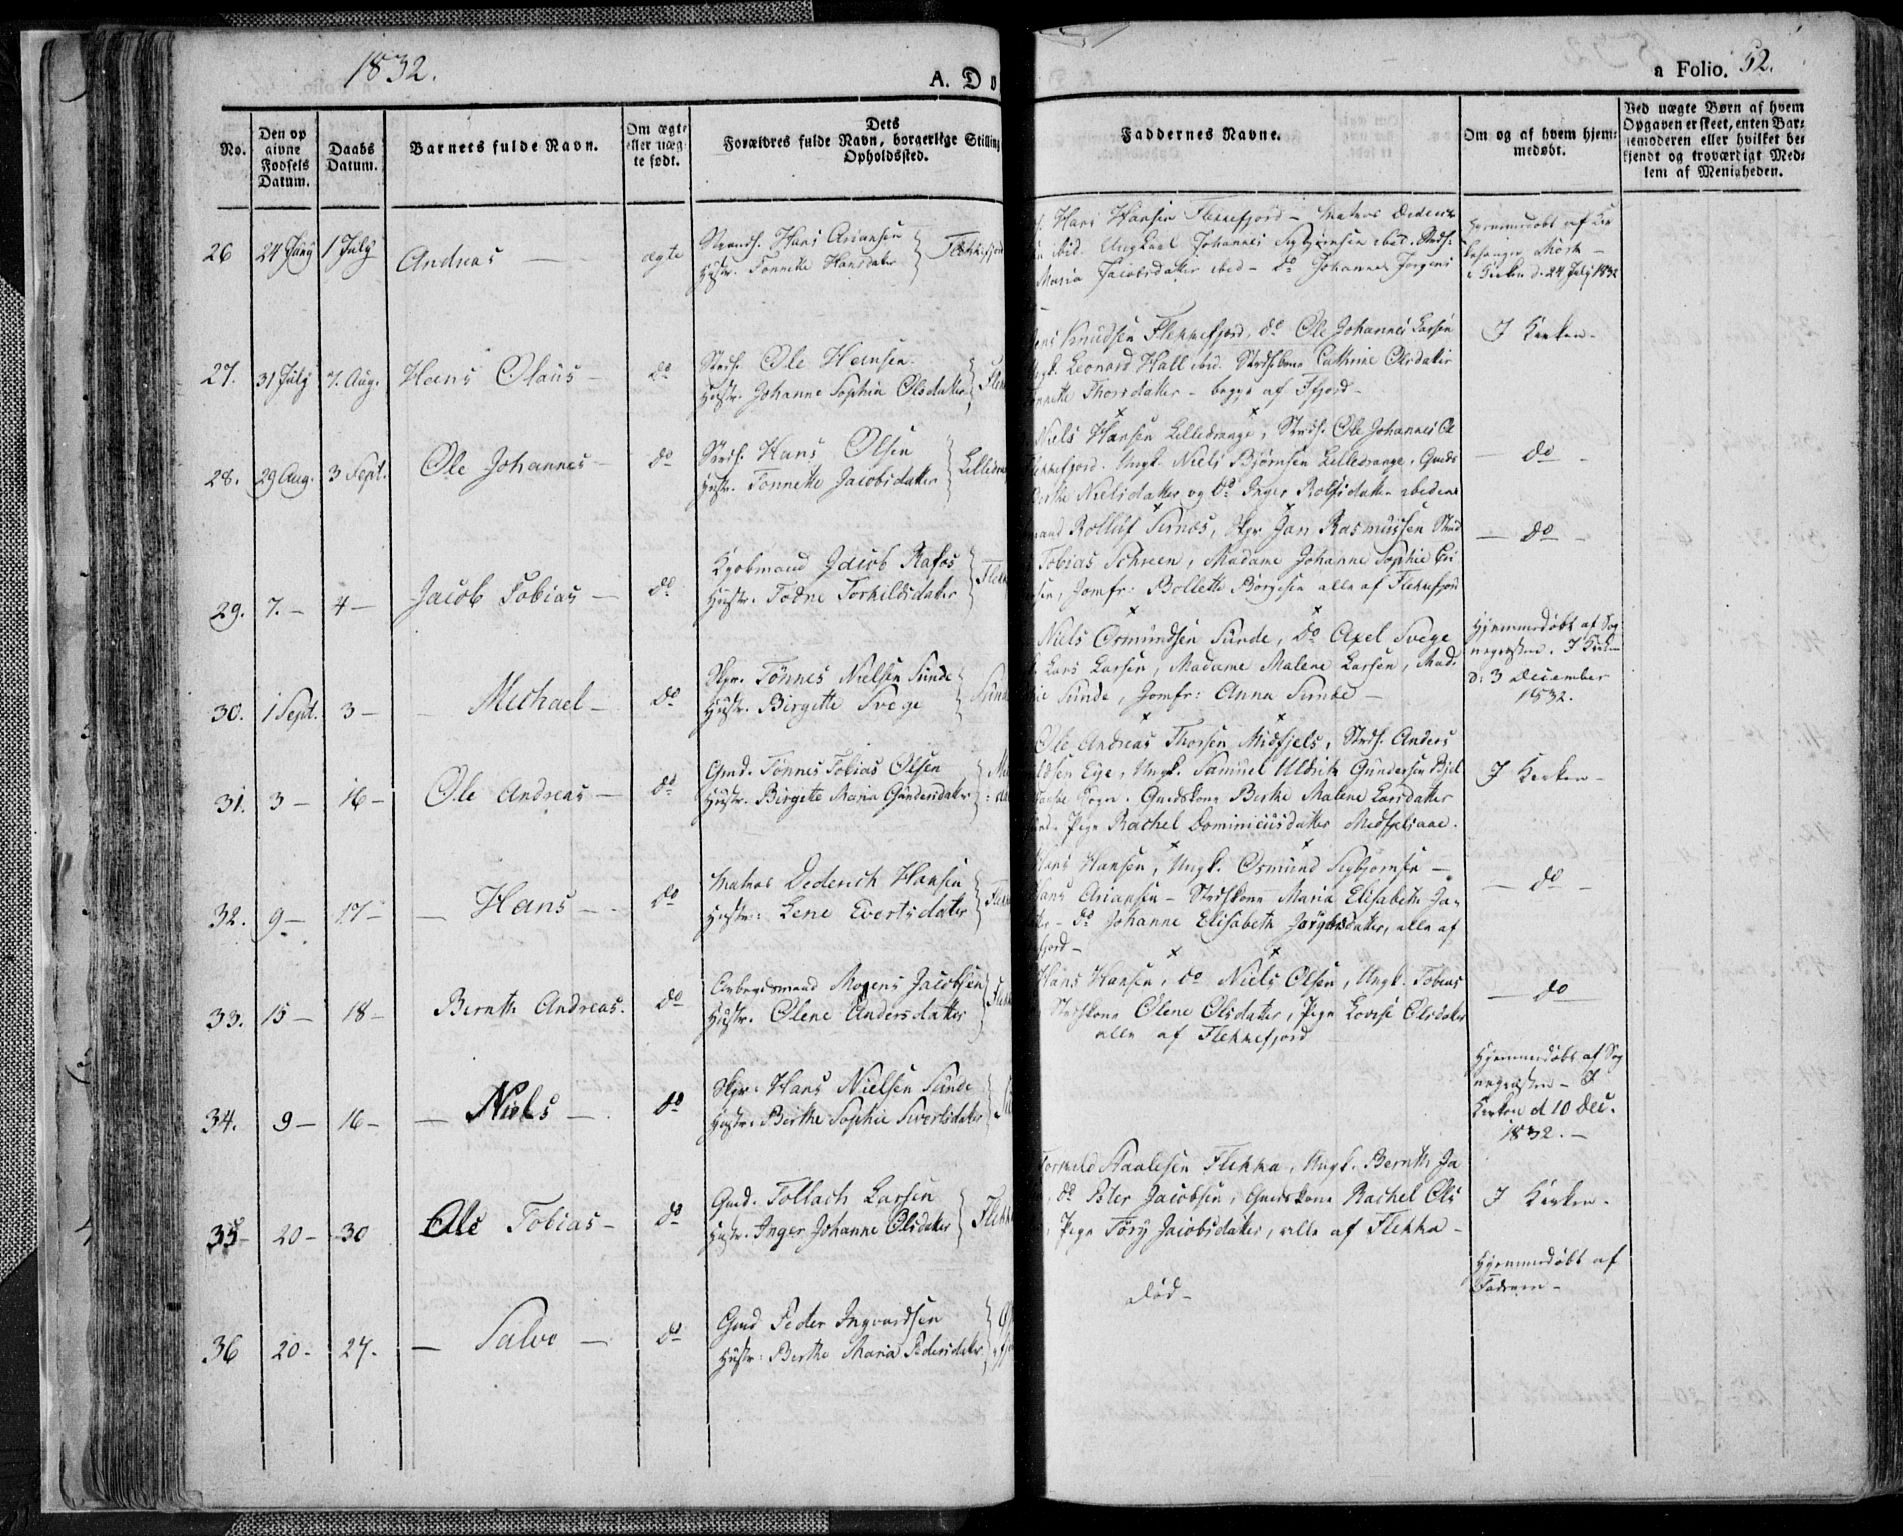 1832.
A. Do
a Folio. 52.
No.
Den op
givne
Fødsels
Datum.
Daabs
Datum.
Barnets fulde Navn.
Om ægte
eller uæg-
te født.
Dets
Forældres fulde Navn, borgerlige Stilling
Opholdssted.
Faddernes Navne.
Om og af hvem hjem-
medøbt.
Ved uægte Børn af hvem
Opgaven er skeet, enten Bar-
nemoderen eller hvilket be-
kjendt og troværdigt Med-
lem af Menigheden.
26 24 Juny 1 July Andreas — ægte
Strands. Hans Ariansen
Hustr. Tonnette Hansdatter
Flekkefjord
Hans Hansen Flekkefjord — Matros Dederich
ibid. Ungkarl Johannes Sigbjørnsen ibid. Strds:
Maria Jacobsdatter ibid — do Johanne Jørgens
Hjemmedøbt af Kir
kesanger Mork —
i Kirken d. 24 July 1832
27. 31 July 7. Aug. Hans Olaus — do
Strds. Ole Hansen
Hustr. Johanne Sophia Olsdatter
Flekk
Knudsen Flekkefjord, do Ole Johannes Larsen
Leonard Hall ibid. Strdskone Cathrine Olsdatter
Thorsdatter — begge af Ffjord —
I Kirken —
28. 29 Aug. 3 Sept. Ole Johannes — do
Strds. Hans Olsen
Hustr. Tonnette Jacobsdatter
Lilledran
Niels Hansen Lilledrange, Strds. Ole Johannes Ol
Flekkefjord. Ungk. Niels Bjørnsen Lilledrange, Gmds
Berthe Nielsdatter og do Inger Rolfsdatter ibidem
— do —
29. 7. — 4 — Jacob Tobias — do
Kjøbmand Jacob Rafos
Hustr. Todne Torkildsdatter
Flekk
mand Rolluf Sirnæs, Skpr Jan Rasmussen Strds
Tobias Schreen, Madame Johanne Sophie Eri
sen, Jomfr: Bollette Børgesen alle af Flekkefjord
— do —
30. 1 Sept. 3 — Michael — do
Skpr. Tønnes Nielsen Sunde
Hustr. Birgitte Svege
Sunde
Niels Osmundsen Sunde, do Axel Svege
Lars Larsen, Madame Malene Larsen, Mad.
Sunde, Jomfr: Anna Simbe —
Hjemmedøbt af Sog
nepræsten. I Kirken
d: 3 December
1832.
31. 3 — 16 — Ole Andreas — do
Gmd. Tønnes Tobias Olsen
Hustr. Birgitte Maria Gundersdatter
Ole Andreas Thorsen Midfjels, Strds. Anders
Eye, Ungk. Samuel Uldrik Gundersen
Sogn. Gmdskone Berthe Malene Larsdatter
Pige Rachel Dominicusdatter Medfjelsaae.
I Kirken —
32. 9 — 17 — — Hans — do
Matros Dederich Hansen
Hustr: Lene Evertsdatter
Flekk
Hans Hansen, Ungk. Osmund Sigbjørnsen —
Hans Ariansen — Strdskone Maria Elisabeth Ja-
— do Johanne Elisabeth Jørgensdatter, alle af
fjord —
— do —
33. 15 — 18 — Bernth Andreas. do
Arbeidsmand Mogens Jacobsen
Hustr. Olene Andersdatter
Flekk
Hans Hansen, do Niels Olsen, Ungk. Tobias
Strdskone Olene Olsdatter, Pige Lovise Olsdatter
alle af Flekkefjord
— do
34. 9 — 16 — — Niels — do
Skpr. Hans Nielsen Sunde
Hustr. Berthe Sophie Sivertsdatter
Hjemmedøbt af Sog
nepræsten — I
Kirken d 10 Dec.
1832. —
35 — 20 — 30 Ole Tobias — do
Gmd. Tollach Larsen
Hustr. Inger Johanne Olsdatter
Flekk
Tormod Staalesen Flekka, Ungk. Bernth Ja
do Peter Jacobsen, Gmdskone Rachel Ols
Pige Tøry Jacobsdatter, alle af Flekka —
I Kirken —
36 20 — 27. — Salve — do
Gmd Peder Ingvardsen
Hustr: Berthe Maria Pedersdatter
Død —
Hjemmedøbt af
Faderen —